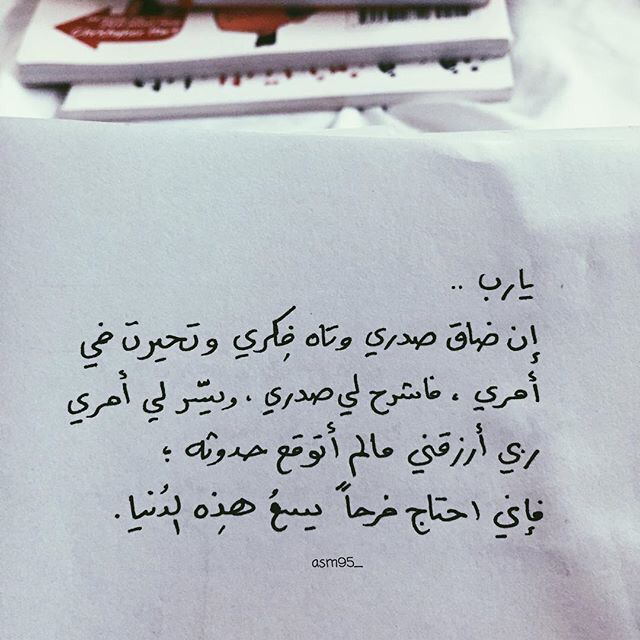 يارب ..
إن ضاق صدري وتاه فِكري وتحيرت في
أمري ، فاشرح لي صدري ، ويسّر لي أمري
ربي أرزقني مالم أتوقع حدوثه ؛
فإني احتاج فرحاً يسعُ هذِه الدُنيا .
asm95_